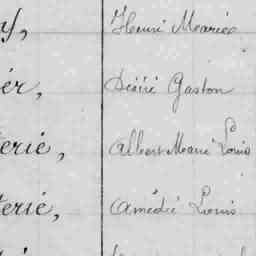 y, Henri Marie
ér, Désiré Gaston
terie, Albert Marie Louis
terie, Amédée Louis